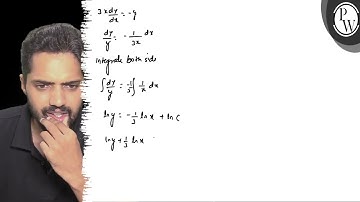 3x dy/dx = -y
dy/y = -1/3x dx
integrate both side
∫ dy/y = -1/3 ∫ 1/x dx
ln y = -1/3 ln x + ln c
ln y + 1/3 ln x
PW